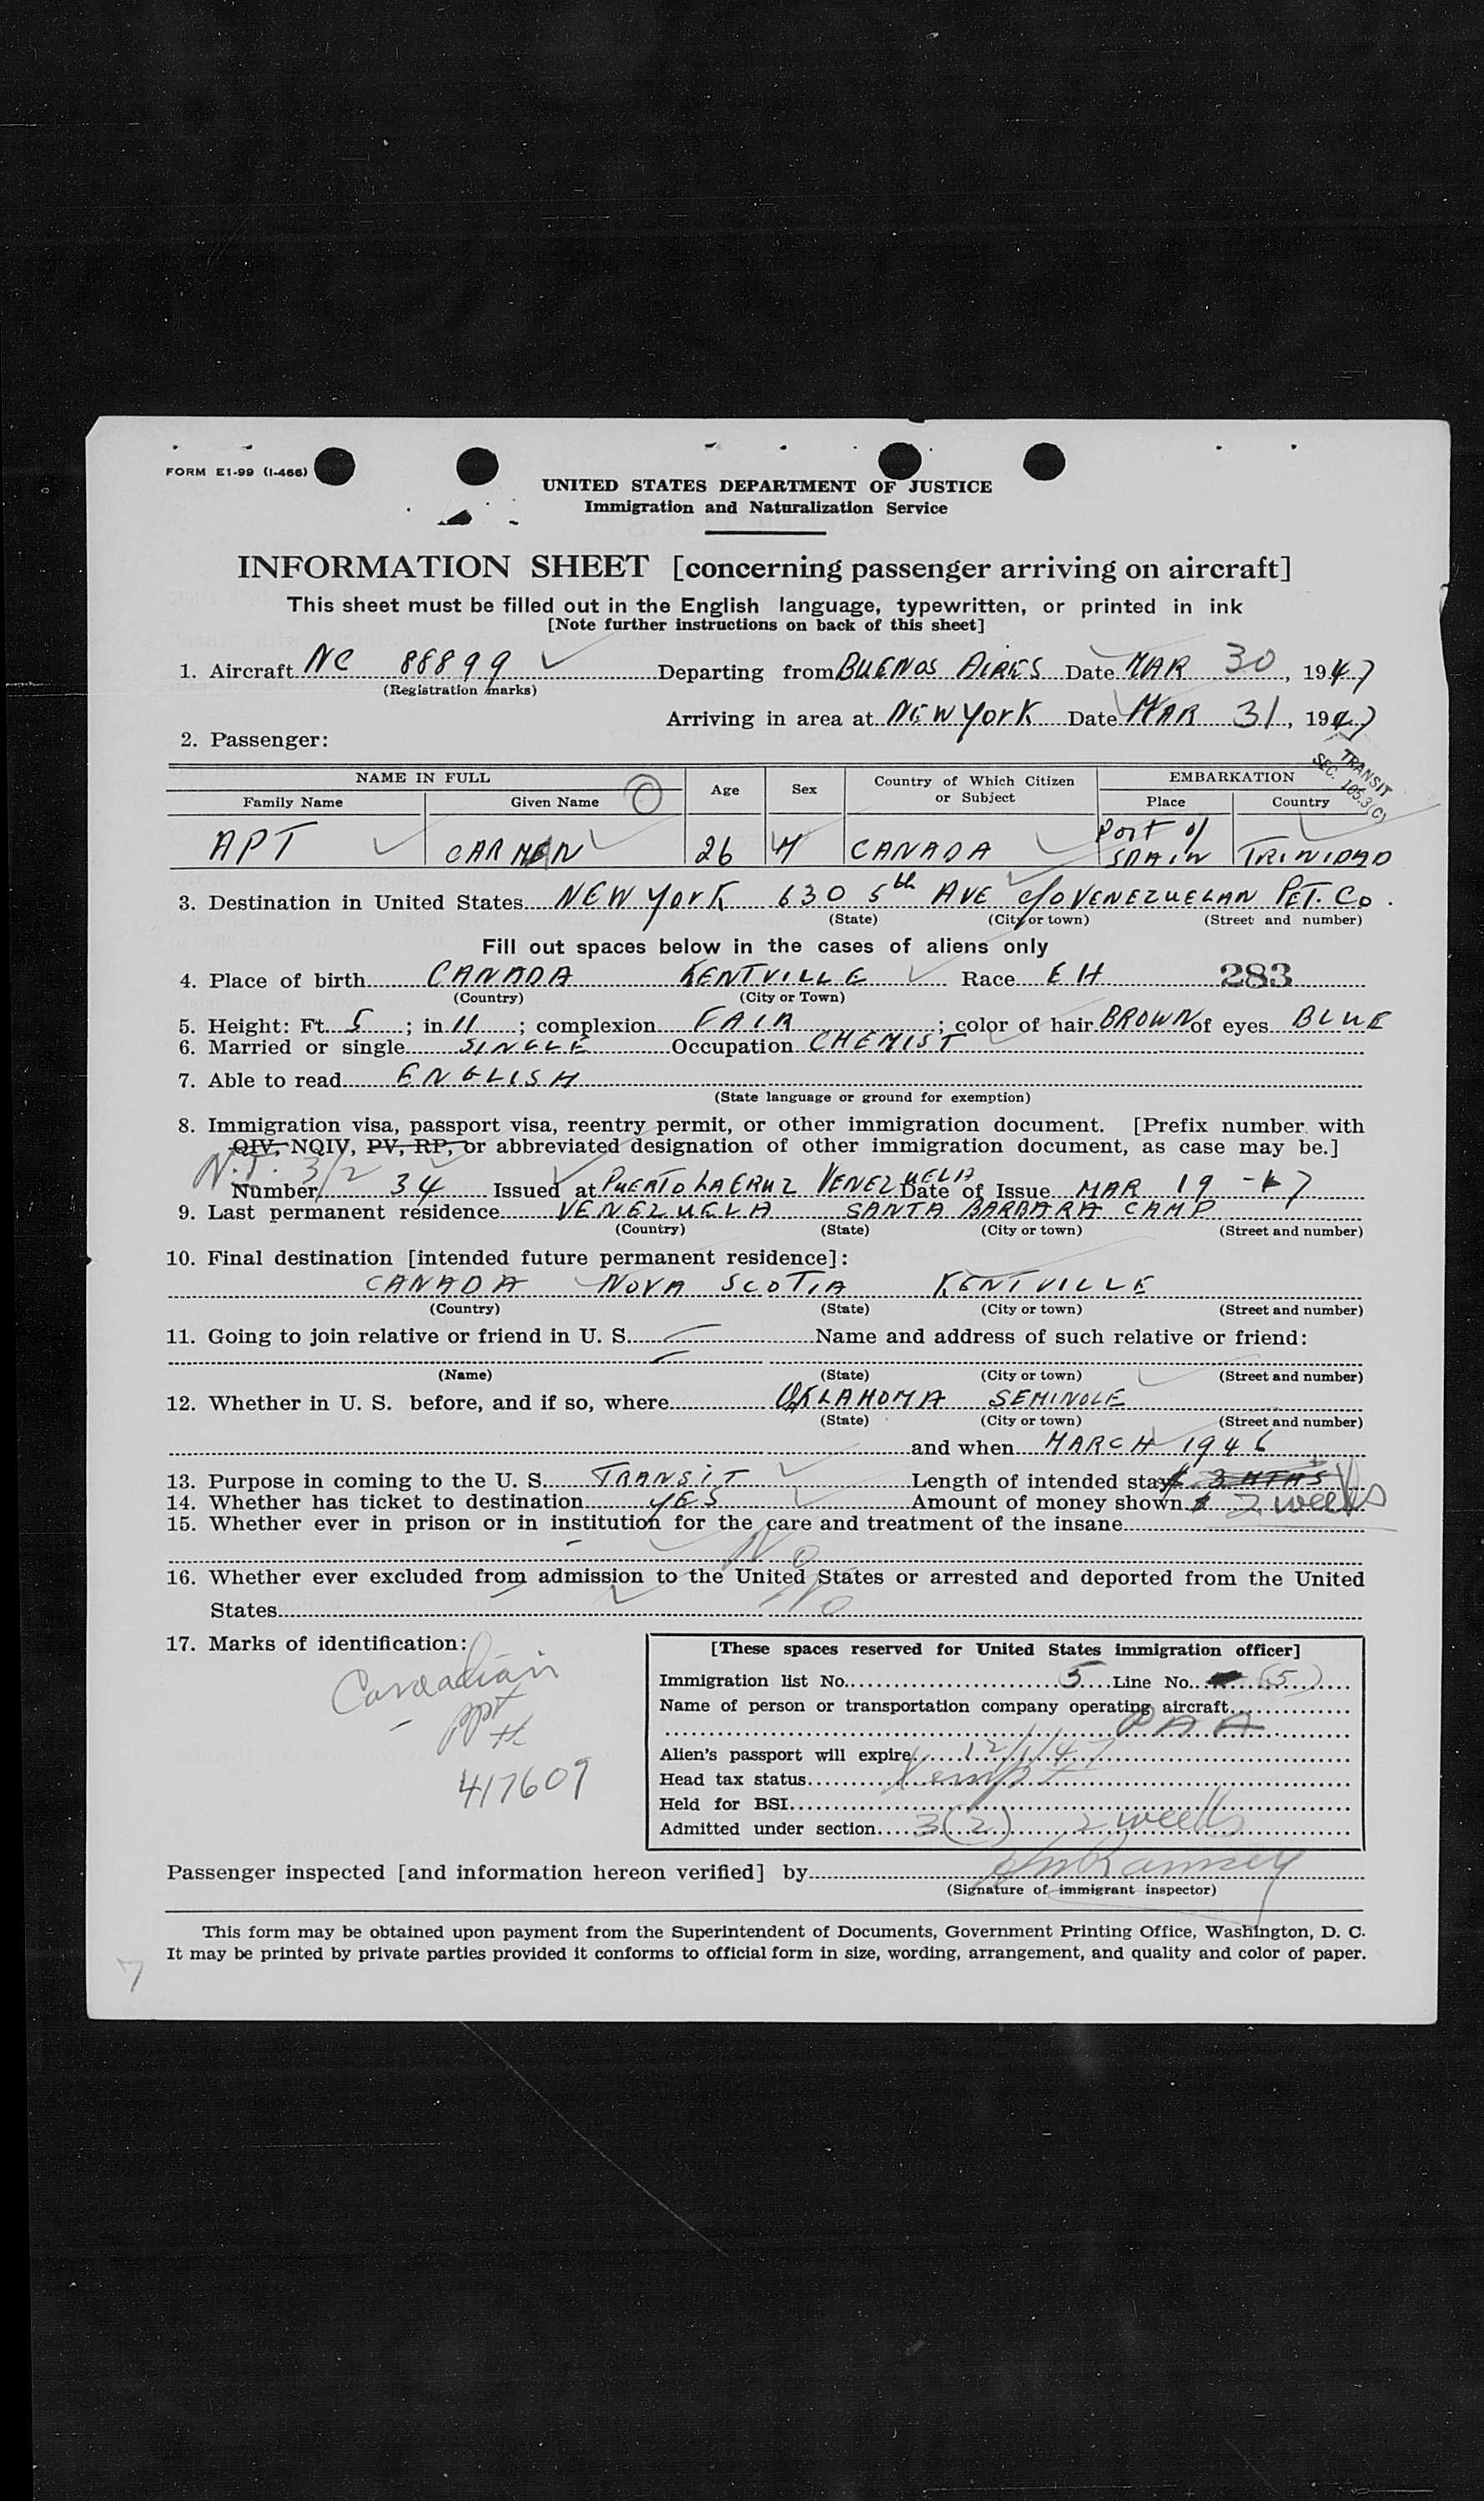 FORM E1-99 (I-466)
UNITED STATES DEPARTMENT OF JUSTICE
Immigration and Naturalization Service
INFORMATION SHEET [concerning passenger arriving on aircraft]
This sheet must be filled out in the English language, typewritten, or printed in ink
[Note further instructions on back of this sheet]
1. Aircraft NC 88899 Departing from BUENOS AIRES Date MAR 30, 1947
(Registration marks)
Arriving in area at NEW YORK Date MAR 31, 1947
2. Passenger:
TRANSIT
SEC. 105.3(C)
NAME IN FULL Age Sex Country of Which Citizen or Subject EMBARKATION
Family Name Given Name Place Country
APT CARMEN 26 M CANADA Port of SPAIN TRINIDAD
3. Destination in United States NEW YORK 630 5th AVE c/o VENEZUELAN PET. Co.
(State) (City or town) (Street and number)
Fill out spaces below in the cases of aliens only
4. Place of birth CANADA KENTVILLE Race EH 283
(Country) (City or Town)
5. Height: Ft. 5; in 11; complexion FAIR; color of hair BROWN of eyes BLUE
6. Married or single SINGLE Occupation CHEMIST
7. Able to read ENGLISH
(State language or ground for exemption)
8. Immigration visa, passport visa, reentry permit, or other immigration document. [Prefix number with
QIV, NQIV, PV, RP, or abbreviated designation of other immigration document, as case may be.]
3/2
Number 34 Issued at PUERTO LA CRUZ VENEZUELA Date of Issue MAR 19 -47
9. Last permanent residence VENEZUELA SANTA BARBARA CAMP
(Country) (State) (City or town) (Street and number)
10. Final destination [intended future permanent residence]:
CANADA NOVA SCOTIA KENTVILLE
(Country) (State) (City or town) (Street and number)
11. Going to join relative or friend in U. S. Name and address of such relative or friend:
(Name) (State) (City or town) (Street and number)
12. Whether in U. S. before, and if so, where OKLAHOMA SEMINOLE
(State) (City or town) (Street and number)
and when MARCH 1946
13. Purpose in coming to the U. S. TRANSIT Length of intended stay 3 MTHS
14. Whether has ticket to destination YES Amount of money shown $ 2 weeks
15. Whether ever in prison or in institution for the care and treatment of the insane
No
16. Whether ever excluded from admission to the United States or arrested and deported from the United
States No
17. Marks of identification:
Canadian
ppt
#
417609
[These spaces reserved for United States immigration officer]
Immigration list No. 5 Line No. (5)
Name of person or transportation company operating aircraft
PAA
Alien's passport will expire 12/1/47
Head tax status Xempt
Held for BSI
Admitted under section 3(2) 2 weeks
Passenger inspected [and information hereon verified] by
(Signature of immigrant inspector)
This form may be obtained upon payment from the Superintendent of Documents, Government Printing Office, Washington, D. C.
It may be printed by private parties provided it conforms to official form in size, wording, arrangement, and quality and color of paper.
7